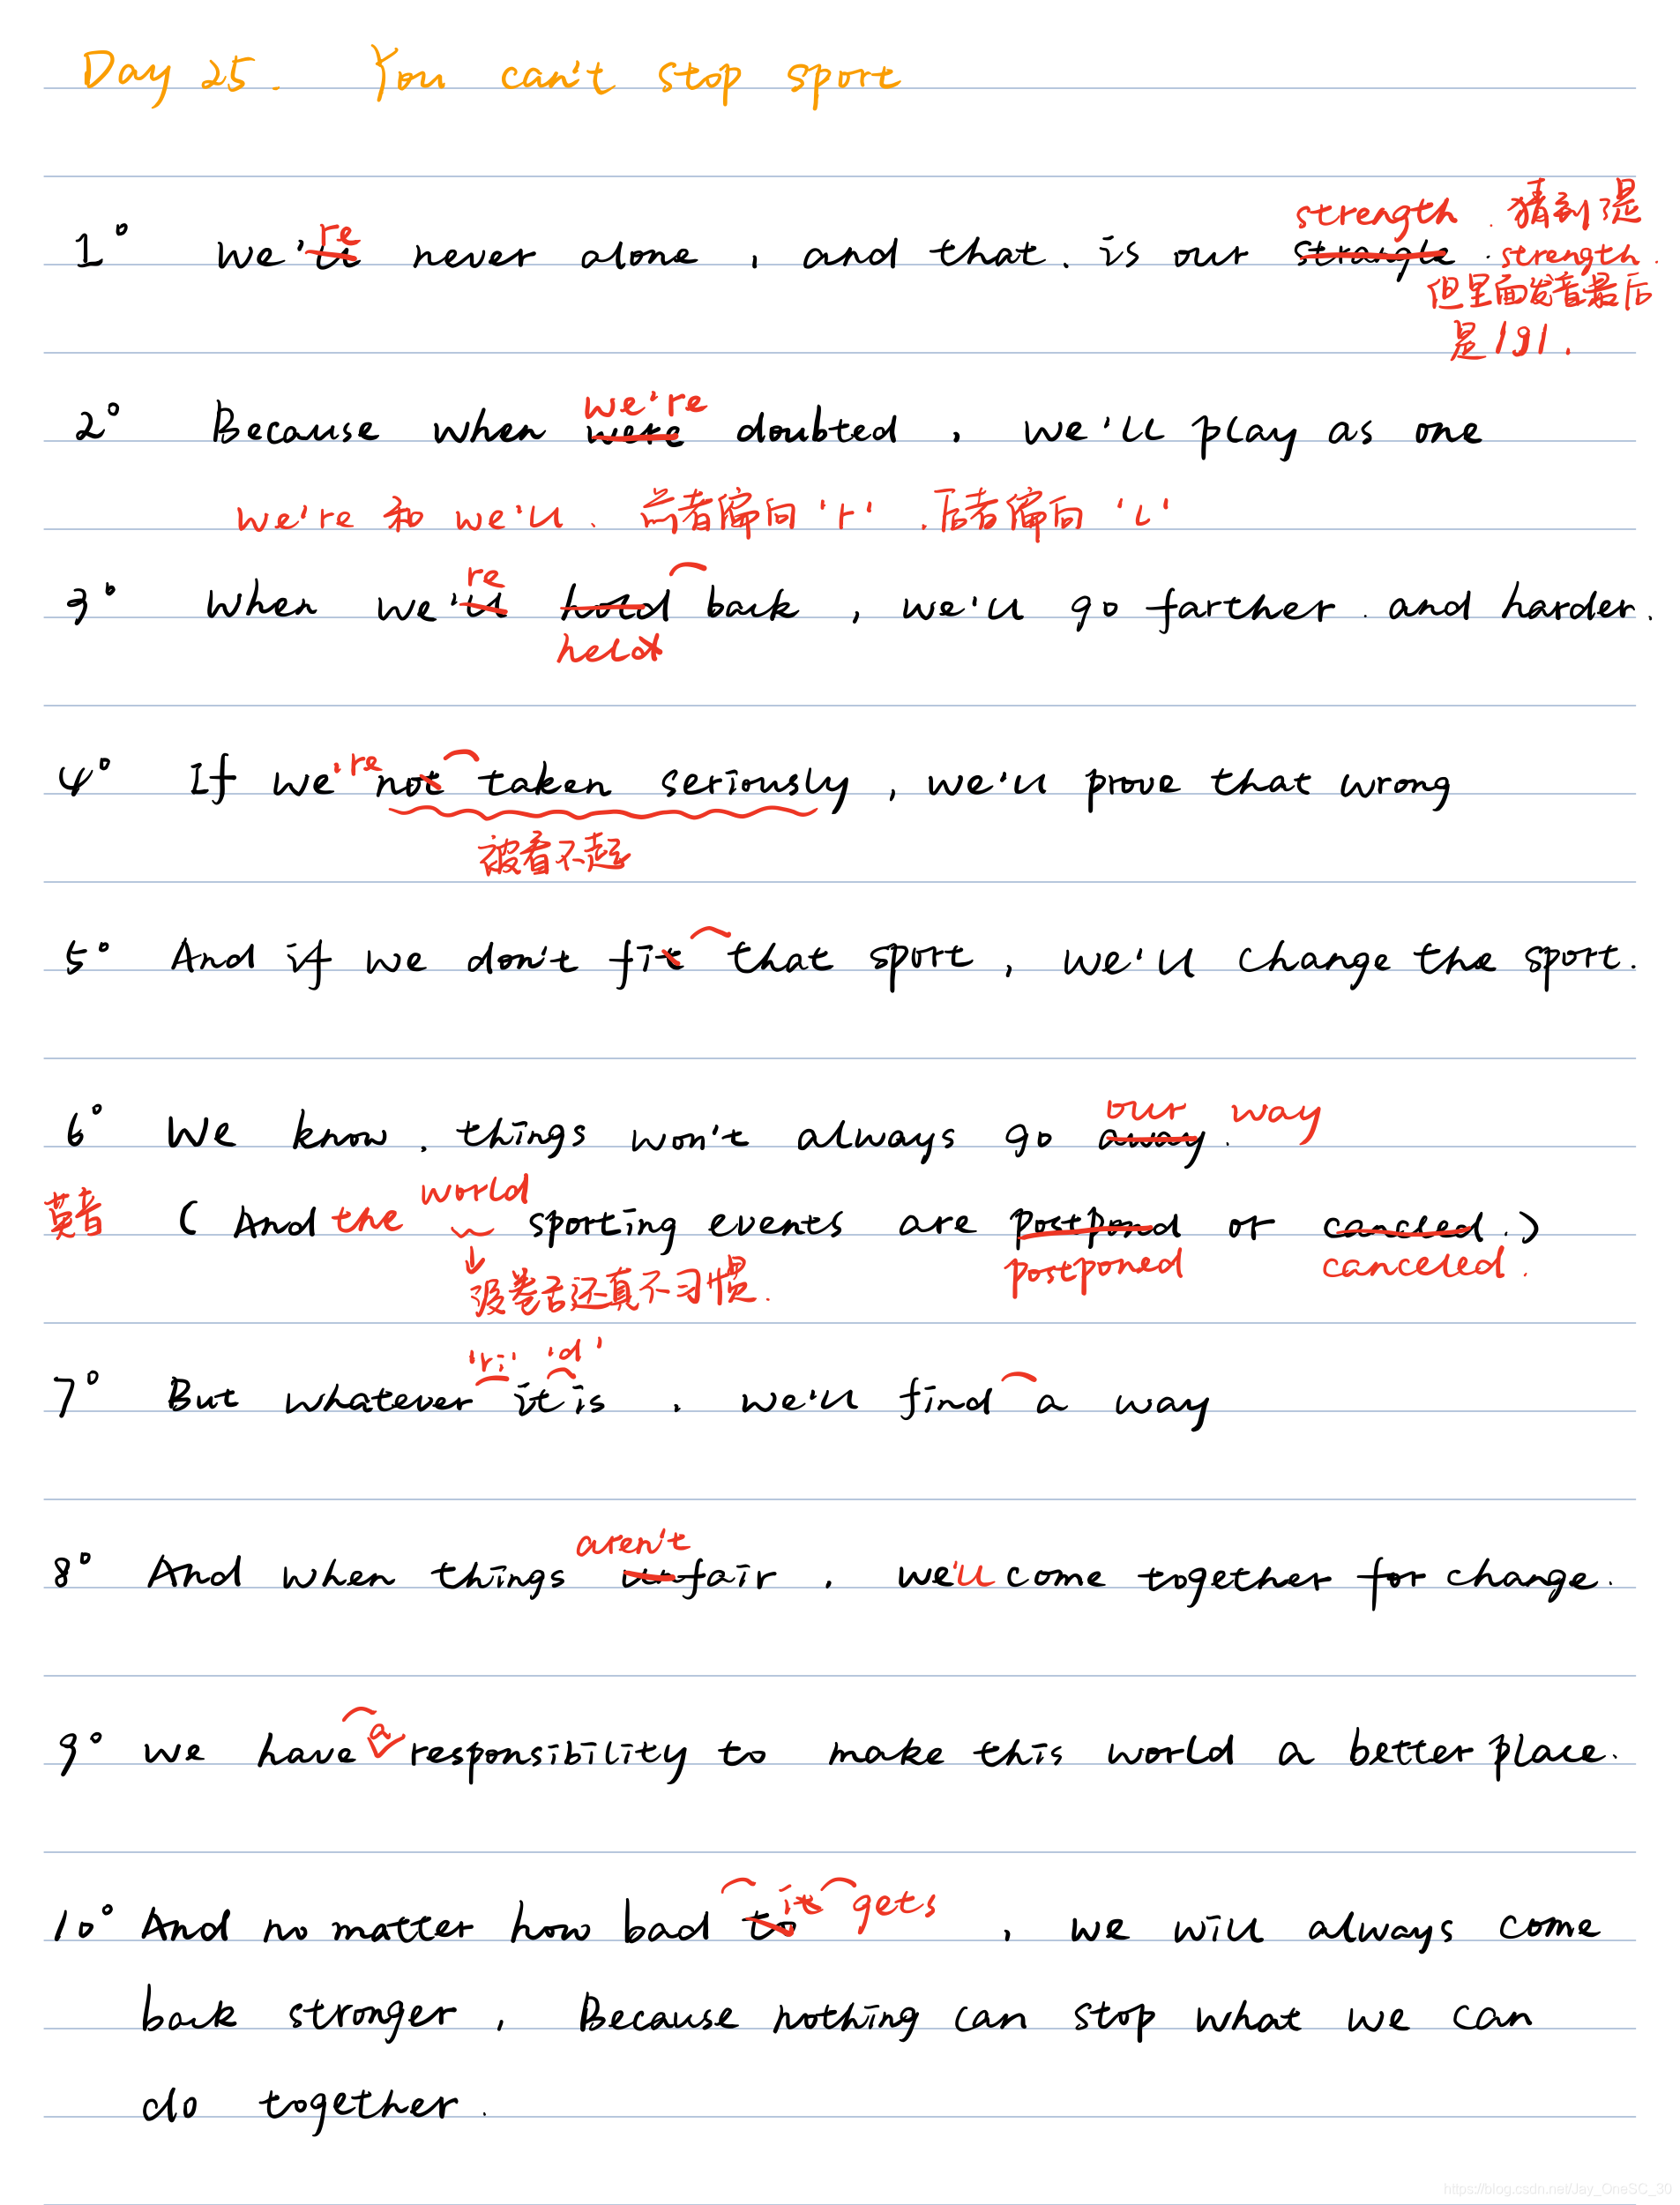 Day 25. You can't stop sport
re strength. 猜到是
1° We'll never alone, and that. is our strangle. strength.
但里面发音最后
是/g/.
we're
2° Because when were doubted, we'll play as one
we're 和 we'll. 前者偏向 'r'. 后者偏向 'l'
re
3° When we'll hold back, we'll go farther. and harder.
held
4° If we're not taken seriously, we'll prove that wrong
被看不起
5° And if we don't fit that sport, we'll change the sport.
our way
6° We know. things won't always go away.
world
英音 (And the sporting events are postpond or cancled.)
↓ postponed canceled.
没卷舌还真不习惯.
'ri' 'd'
7° But whatever it is, we'll find a way
aren't
8° And when things unfair, we'll come together for change.
a
9° we have responsibility to make this world a better place.
it gets
10° And no matter how bad to, we will always come
back stronger, Because nothing can stop what we can
do together.
https://blog.csdn.net/Jay_OneSC_30